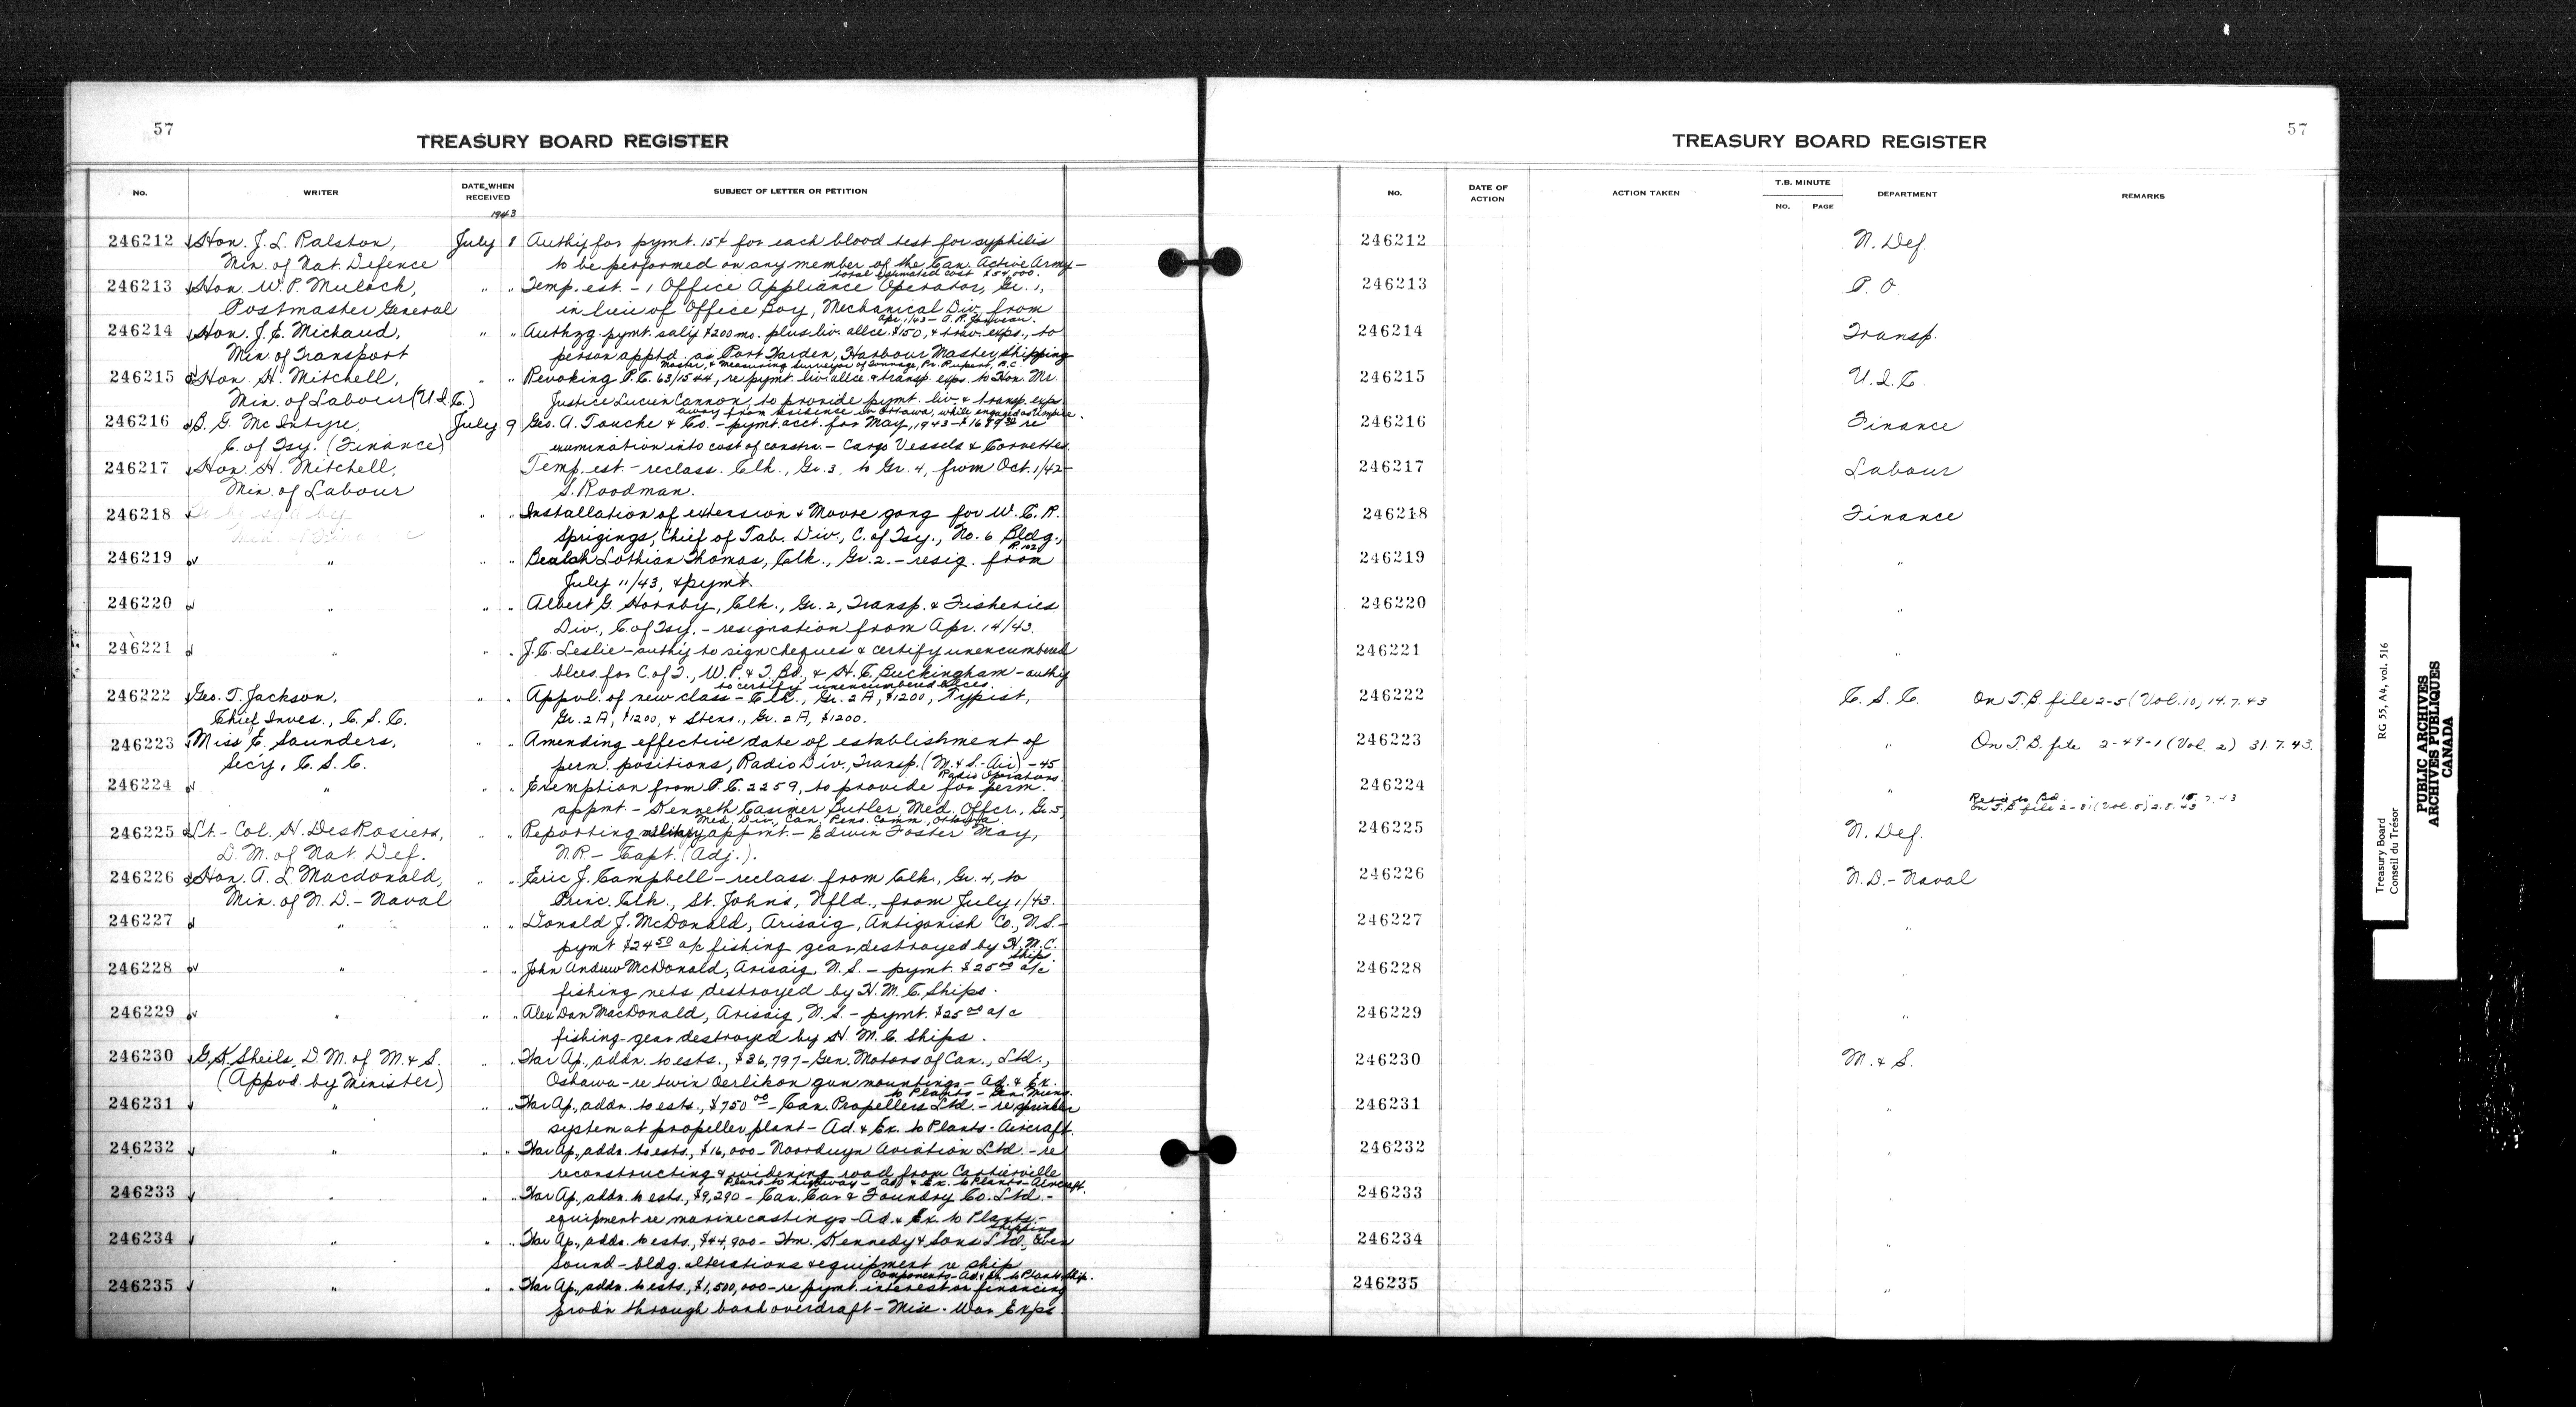 57
TREASURY BOARD REGISTER
No.
WRITER
DATE WHEN RECEIVED
SUBJECT OF LETTER OR PETITION
1943
246212 Hon. J. L. Ralston, July 8 Authy for pymt. 15¢ for each blood test for syphilis
Min. of Nat. Defence to be performed on any member of the Can. Active Army—
total estimated cost $54,000.
246213 Hon. W. P. Mulock, " " Temp. est. - 1 Office Appliance Operator, Gr. 1,
Postmaster General in lieu of Office Boy, Mechanical Div. from
Apr. 1/43 -
246214 Hon. J. E. Michaud, " " Authzg. pymt. saly $200 mo. plus liv. allce. $150, & trav. exps., to
Min. of Transport person apptd. as Port Warden, Harbour Master, Shipping
Master, & Measuring Surveyor of Tonnage, Pr. Rupert, B.C.
246215 Hon. H. Mitchell, " " Revoking P.C. 63/1544, re pymt. liv. allce. & transp. exps. to Hon. Mr.
Min. of Labour (U.I.C.) Justice Lucien Cannon, to provide pymt. liv. & transp. exps.
away from residence in Ottawa, while engaged as Umpire.
246216 B. G. McIntyre, July 9 Geo. A. Touche & Co. - pymt. acct. for May, 1943 - re
C. of Tsy. (Finance) examination into cost of constrn. - Cargo Vessels & Corvettes.
246217 Hon. H. Mitchell, Temp. est. - reclass. Clk., Gr. 3, to Gr. 4, from Oct. 1/42 -
Min. of Labour S. Roodman.
246218 To be sgd by " " Installation of extension & Moore gong for W. C. R.
Min. of Finance Sprigings, Chief of Tab. Div., C. of Tsy., No. 6 Bldg.,
R. 102
246219 " " " Beulah Lothian Thomas, Clk., Gr. 2. - resig. from
July 11/43, & pymt.
246220 " " " Albert G. Hornby, Clk., Gr. 2, Transp. & Fisheries
Div., C. of Tsy. - resignation from Apr. 14/43.
246221 " " " J. C. Leslie - authy to sign cheques & certify unencumbered
blces. for C. of T., W. P. & T. Bd., & H. C. Buckingham - authy
to certify unencumbered blces.
246222 Geo. T. Jackson, " " Appvl. of new class - Clk., Gr. 2A, $1200, Typist,
Chief Inves., C. S. C. Gr. 2A, $1200, & Steno., Gr. 2A, $1200.
246223 Miss E. Saunders, " " Amending effective date of establishment of
Secy., C. S. C. perm. positions, Radio Div., Transp. (M. & S. - Air) - 45
Radio Operators.
246224 " " " Exemption from P.C. 2259, to provide for perm.
appmt. - Kenneth Casimer Butler, Med. Offcr., Gr. 5,
Med. Div., Can. Pens. Comm., Ottawa.
246225 Lt-Col. H. DesRosiers, " " Reporting military appmt. - Edwin Foster May,
D. M. of Nat. Def. N.R. - Capt. (Adj.).
246226 Hon. A. L. Macdonald, " " Eric J. Campbell - reclass. from Clk., Gr. 4, to
Min. of N. D. - Naval Princ. Clk., St. John's, Nfld., from July 1/43.
246227 " " " Donald J. McDonald, Arisaig, Antigonish Co., N.S. -
pymt $24.50 a/c fishing gear destroyed by H.M.C.
Ship.
246228 " " " John Andrew McDonald, Arisaig, N. S. - pymt. $25.00 a/c
fishing nets destroyed by H. M. C. Ships.
246229 " " " Alex Dan MacDonald, Arisaig, N. S. - pymt. $25.00 a/c
fishing gear destroyed by H. M. C. Ships.
246230 G. K. Sheils, D. M. of M. & S. " " War Ap., addn. to ests., $36,797 - Gen. Motors of Can., Ltd.,
(Appvd. by Minister) Oshawa - re twin Oerlikon gun mountings - Ad. & Ex.
to Plants - Gen. Muns.
246231 " " " War Ap., addn. to ests., $750.00 - Can. Propellers Ltd. - re sprinkler
system at propeller plant - Ad. & Ex. to Plants - Aircraft.
246232 " " " War Ap., addn. to ests., $16,000 - Noorduyn Aviation Ltd. - re
reconstructing & widening road from Cartierville
Plant to highway - Ad. & Ex. to Plants - Aircraft.
246233 " " " War Ap., addn. to ests., $9,290 - Can. Car & Foundry Co. Ltd. -
equipment re marine castings - Ad. & Ex. to Plants -
Shipping
246234 " " " War Ap., addn. to ests., $44,900 - Wm. Kennedy & Sons Ltd., Owen
Sound - bldg. alterations & equipment re ship
components - Ad. & Ex. to Plants - Ship.
246235 " " " War Ap., addn. to ests., $1,500,000 - re pymt. interest on financing
prod'n through bank overdraft - Misc. War Exps.
57
TREASURY BOARD REGISTER
No.
DATE OF ACTION
ACTION TAKEN
T.B. MINUTE
No. PAGE
DEPARTMENT
REMARKS
246212 N. Def.
246213 P. O.
246214 Transp.
246215 U. I. C.
246216 Finance
246217 Labour
246218 Finance
246219 "
246220 "
246221 "
246222 C. S. C. On T.B. file 2-5 (Vol. 10) 14.7.43
246223 " On T.B. file 2-49-1 (Vol. 2) 31.7.43.
246224 "
246225 N. Def.
246226 N.D. - Naval
246227 "
246228 "
246229 "
246230 M. & S.
246231 "
246232 "
246233 "
246234 "
246235 "
Treasury Board RG 55, A4, vol. 516
Conseil du Trésor
PUBLIC ARCHIVES
ARCHIVES PUBLIQUES
CANADA